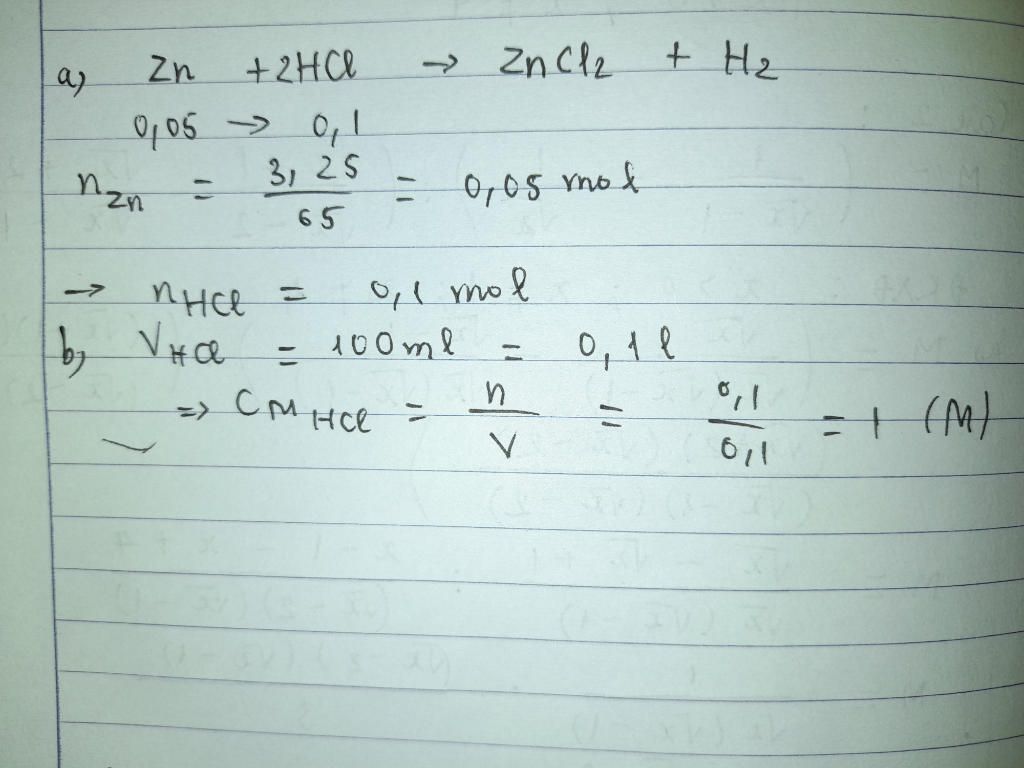 a) Zn + 2HCl → ZnCl₂ + H₂
0,05 → 0,1
n Zn = 3,25 / 65 = 0,05 mol
→ n HCl = 0,1 mol
b) V HCl = 100ml = 0,1 l
=> CM HCl = n / V = 0,1 / 0,1 = 1 (M)